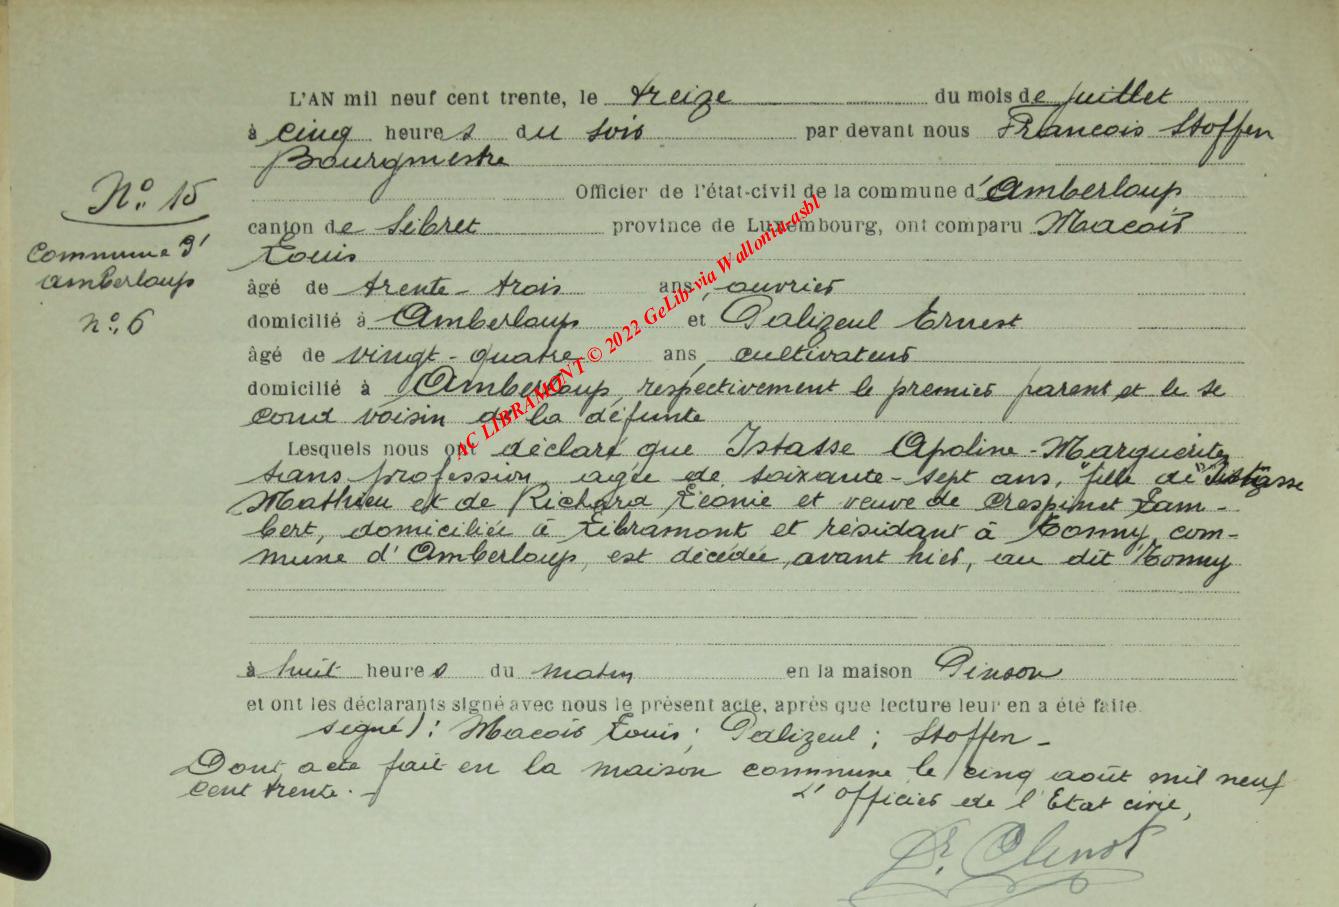 L'AN mil neuf cent trente, le treize du mois de juillet
à cinq heures du soir par devant nous François Stoffen
Bourgmestre
N° 15
Officier de l'état-civil de la commune d'Amberloup
canton de Sibret province de Luxembourg, ont comparu Maçois
Louis
Commune d'
Amberloup
n° 6
âgé de trente-trois ans, ouvrier
domicilié à Amberloup et Palizeul Ernest
âgé de vingt-quatre ans, cultivateur
domicilié à Amberloup, respectivement le premier parent et le se
cond voisin de la défunte
Lesquels nous ont déclaré que Istasse Apoline-Marguerite
sans profession, agée de soixante-sept ans, fille de Istasse
Mathieu et de Richard Léonie et veuve de Crespinet Lam-
bert, domiciliée à Libramont et résidant à Tonny, com-
mune d'Amberloup, est décédée, avant hier, au dit Tonny
à huit heures du matin en la maison Pinson
et ont les déclarants signé avec nous le présent acte, après que lecture leur en a été faite.
signé): Maçois Louis; Palizeul; Stoffen -
Dont acte fait en la maison commune le cinq août mil neuf
cent trente. -
L'officier de l'Etat civil,
AC LIBRAMONT © 2022 GeLib-via Wallonia-asbl